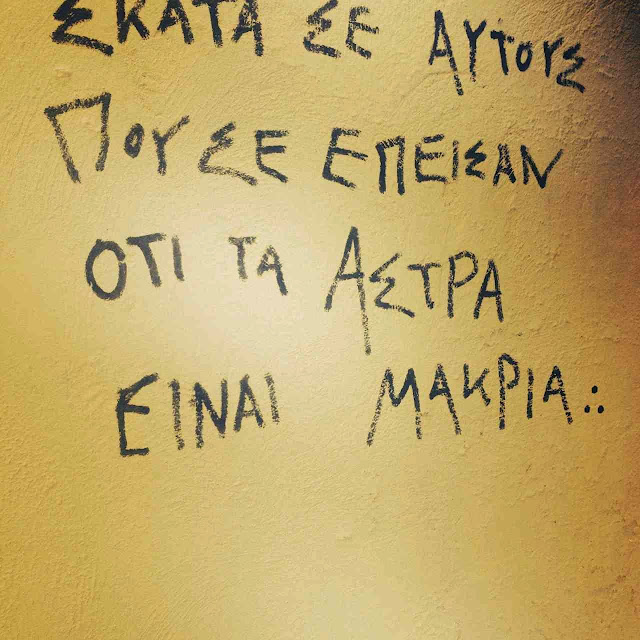 ΣΚΑΤΑ ΣΕ ΑΥΤΟΥΣ
ΠΟΥ ΣΕ ΕΠΕΙΣΑΝ
ΟΤΙ ΤΑ ΑΣΤΡΑ
ΕΙΝΑΙ ΜΑΚΡΙΑ∴